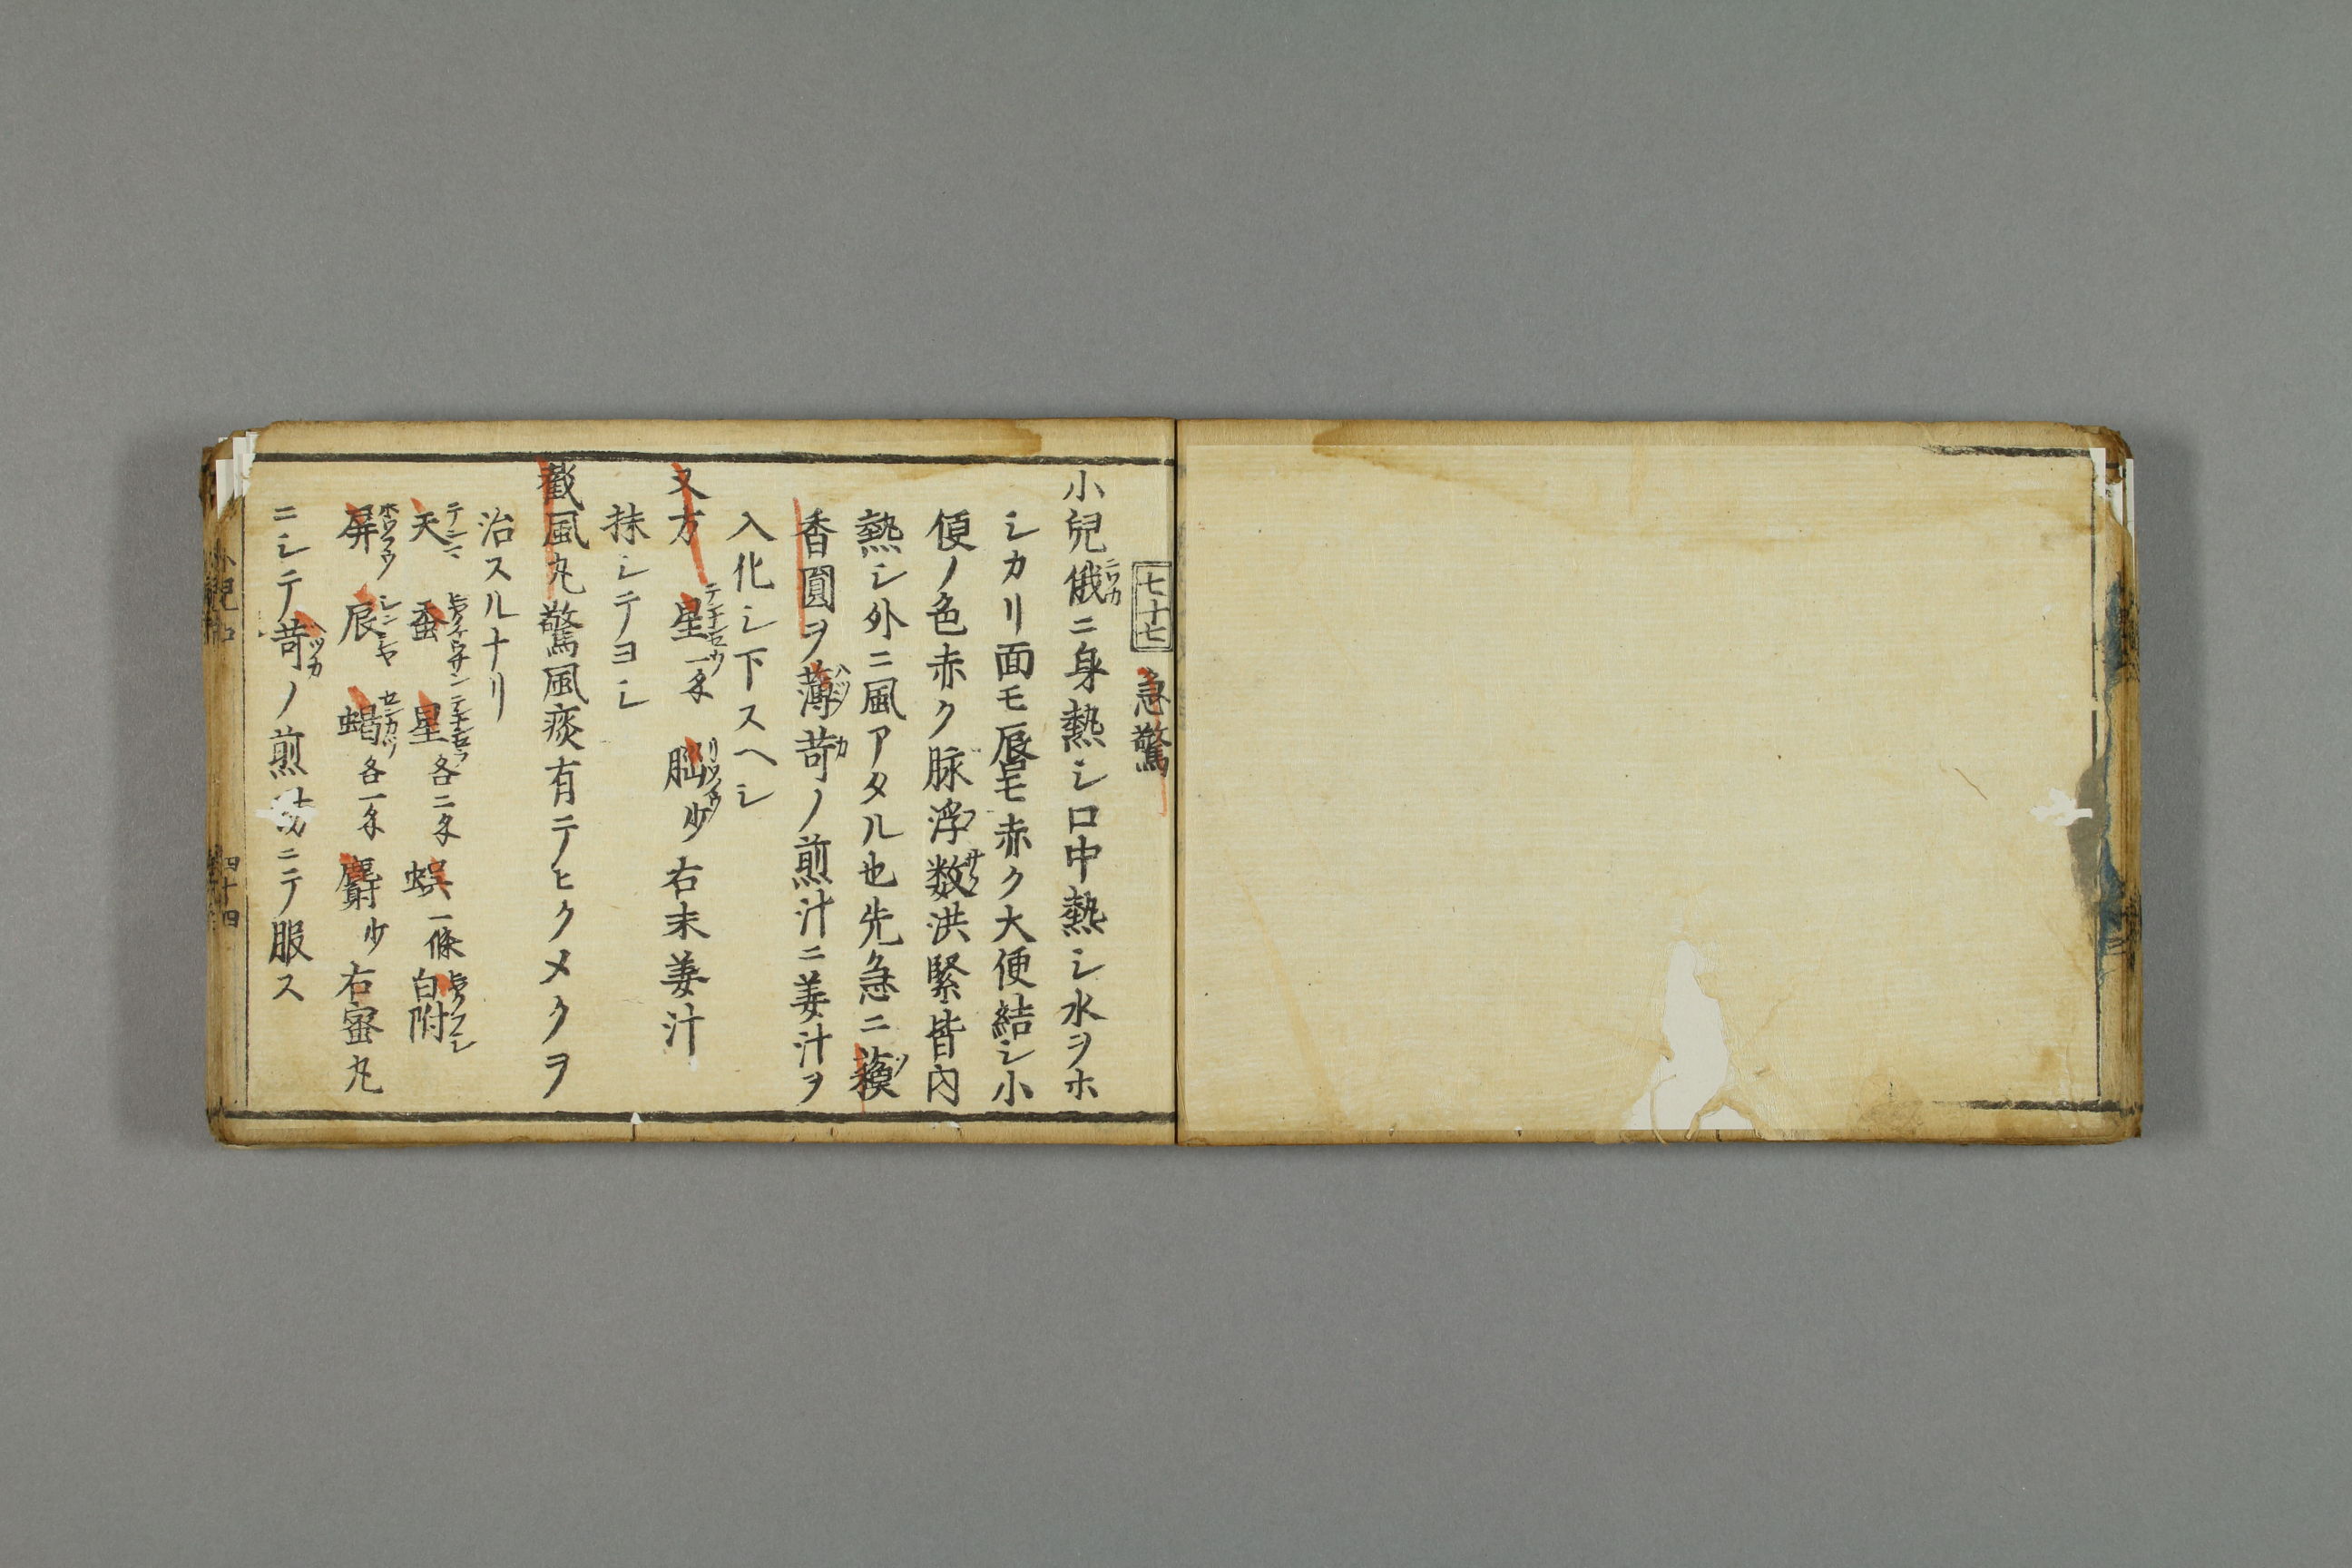 七十七 急驚
小兒俄ニ身熱シ口中熱シ水ヲホ
シカリ面モ唇モ赤ク大便結シ小
便ノ色赤ク脉浮数洪緊皆内
熱シ外ニ風アタル也先急ニ蘓
香圓ヲ薄苛ノ煎汁ニ姜汁ヲ
入化シ下スヘシ
又方 星一匁 脳少右末姜汁
抹シテヨシ
截風丸驚風痰有テヒクメクヲ
治スルナリ
天 蚕 星各二匁 蜈一條 白附
屏 辰 蝎各一匁 麝少 右蜜丸
ニシテ苛ノ煎 ニテ服ス
小兒 四十四